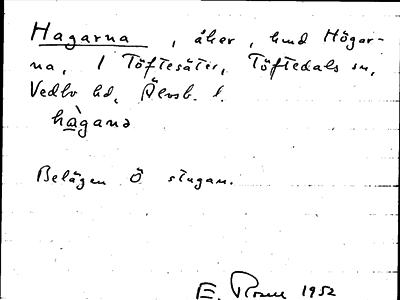 Hagarna, åker, hmd Högar-
na, 1 Töftesäter, Töftedals sn,
Vedbo hd, Älvsb. l.
hàganə
Belägen Ö stugan.
E. Rosell 1952